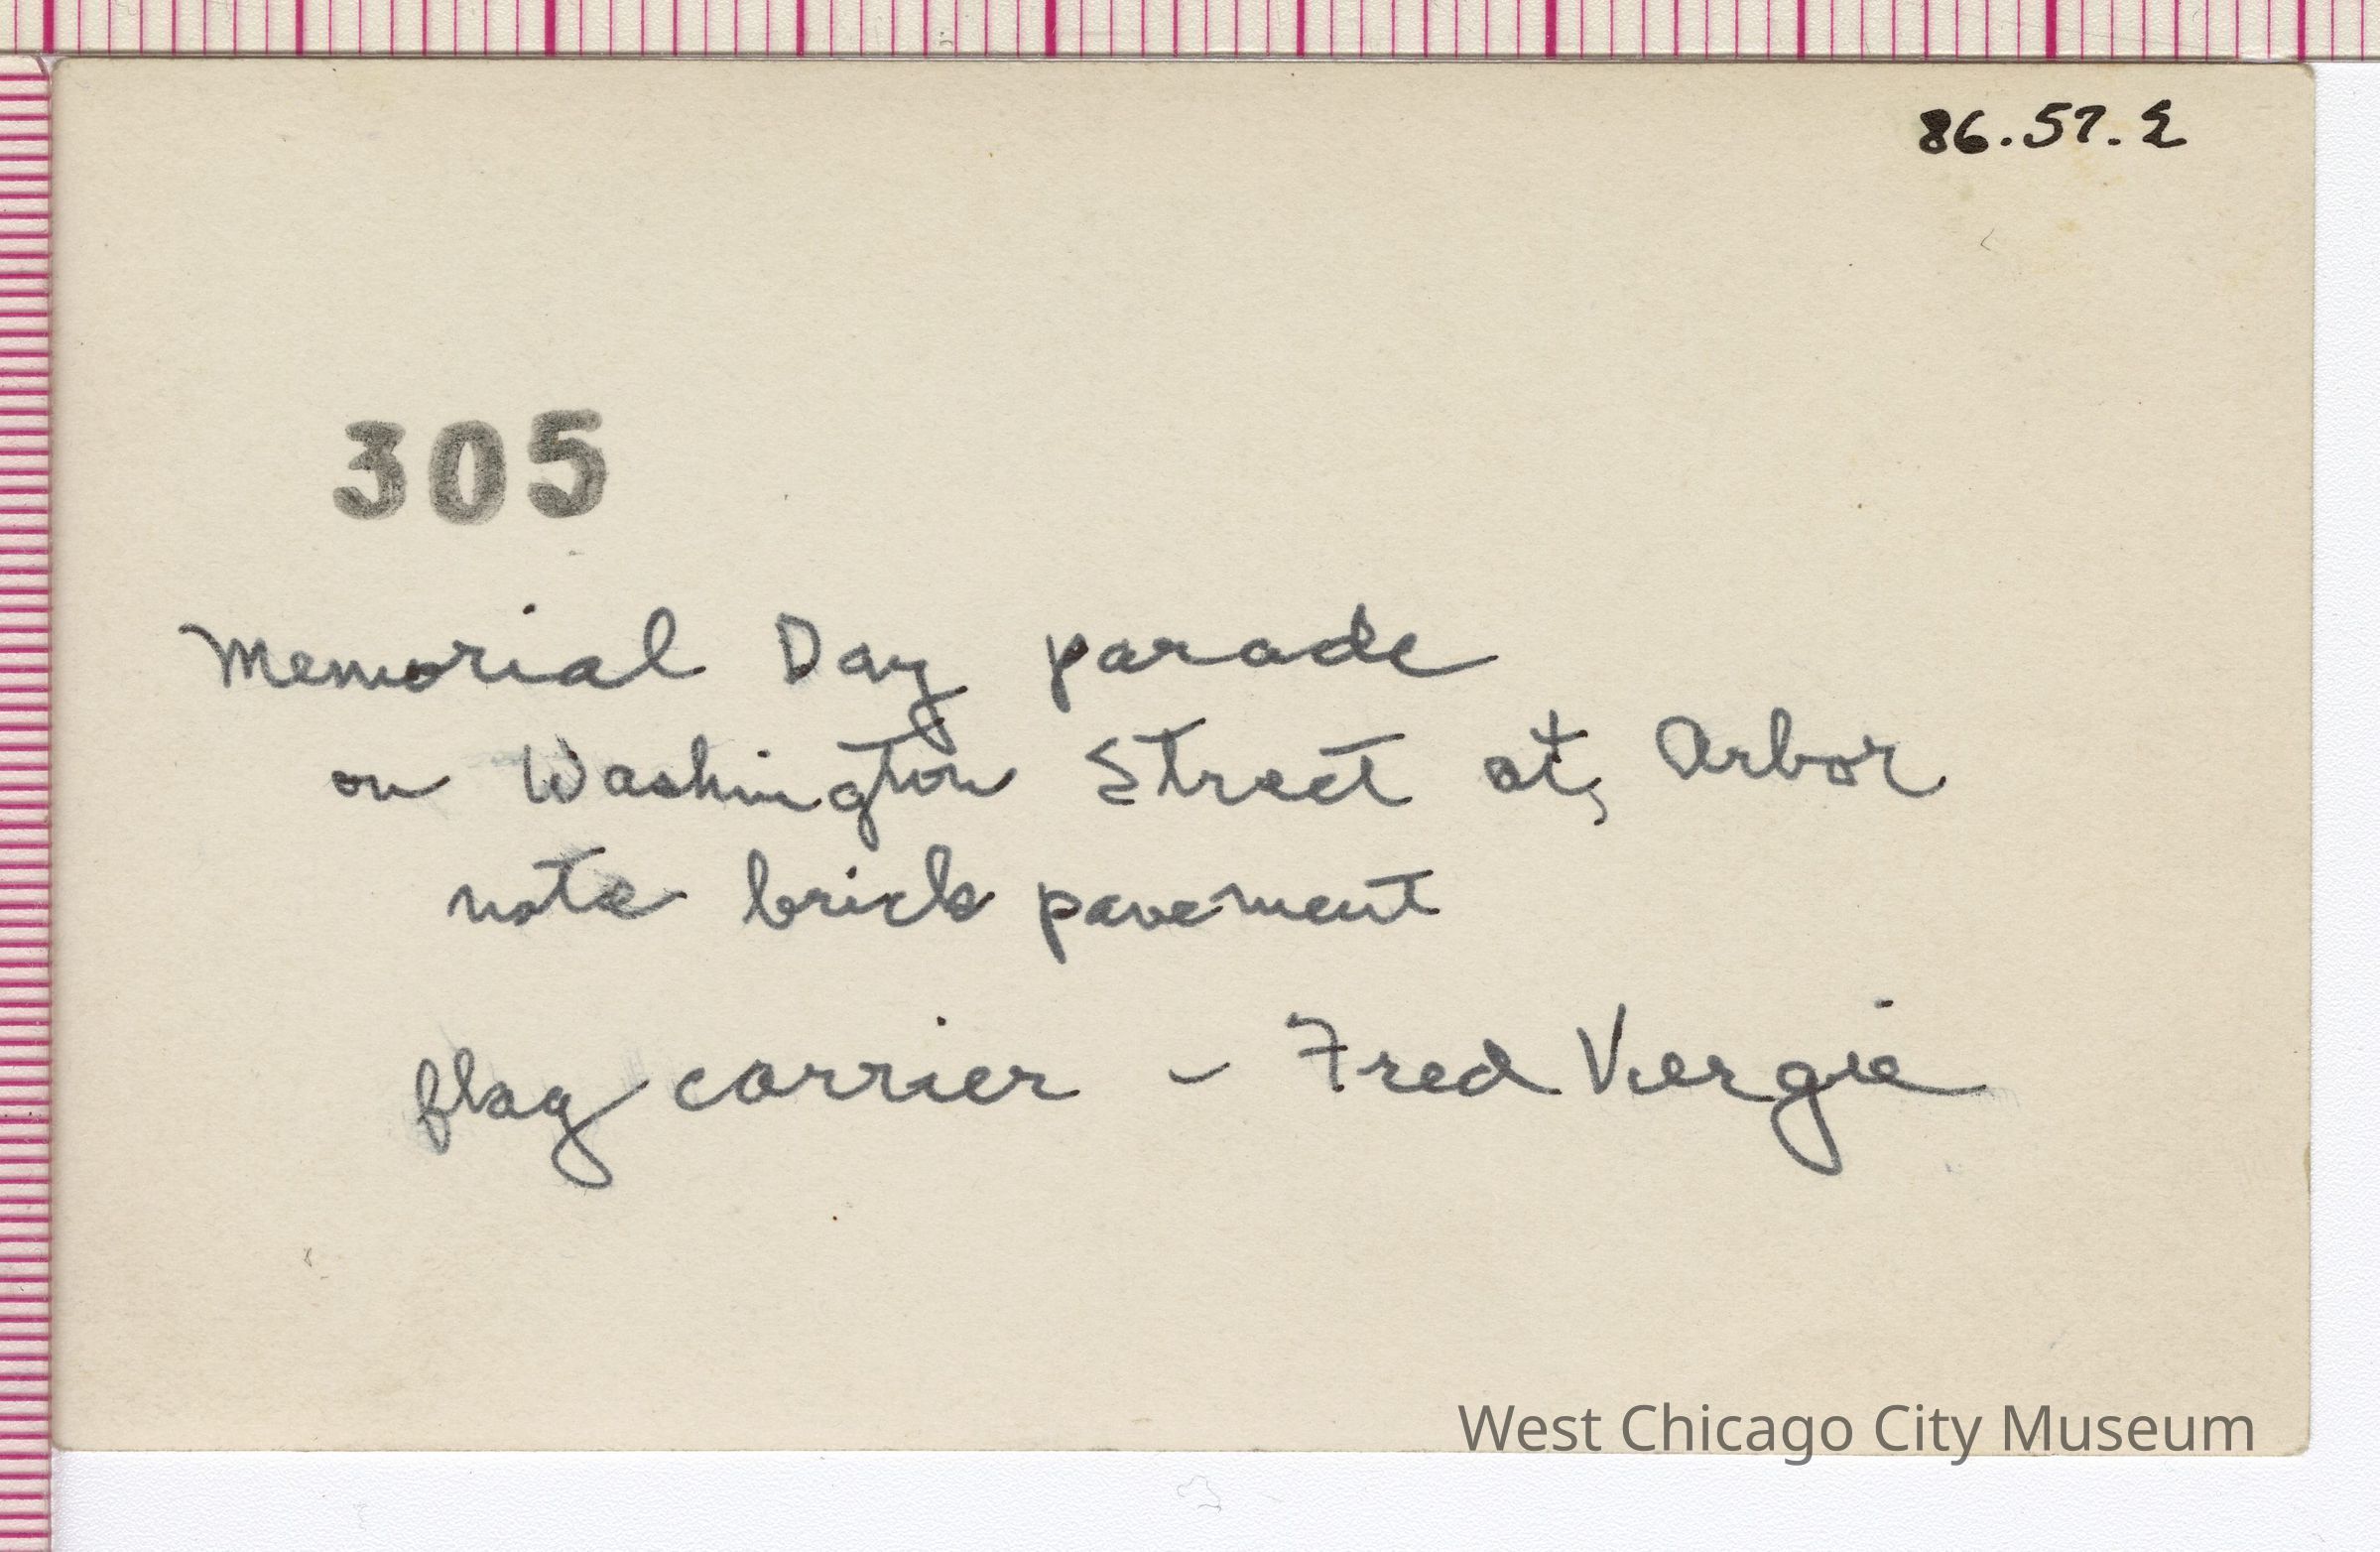 86.57.2
305
Memorial Day parade
on Washington Street at, Arbor
note brick pavement
flag carrier - Fred Viergie
West Chicago City Museum